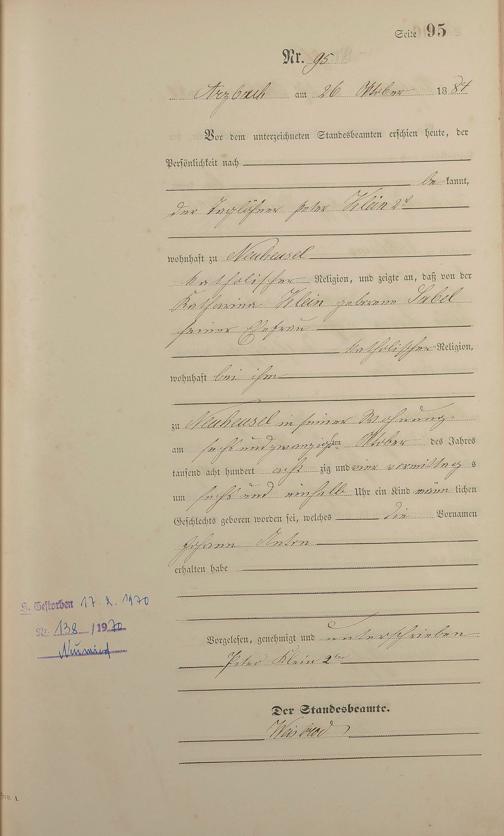 Seite 95
Nr. 95
Arzbach am 26 Oktober 1884
Vor dem unterzeichneten Standesbeamten erschien heute, der
Persönlichkeit nach
be kannt,
der Taglöhner Peter Klein 2r
wohnhaft zu Neuheusel
katholischer Religion, und zeigte an, daß von der
Katharina Klein geborene Sabel
seiner Ehefrau
katholischer Religion,
wohnhaft bei ihm
zu Neuheusel in seiner Wohnung
am sechsundzwanzigsten Oktober des Jahres
tausend acht hundert acht zig und vier vormittag s
um sechs und einhalb Uhr ein Kind männ lichen
Geschlechts geboren worden sei, welches die Vornamen
Johann Anton
erhalten habe
Gestorben 17. 2. 1970
Nr. 138 /1970
Neuwied
Vorgelesen, genehmigt und unterschrieben
Peter Klein 2ter
Der Standesbeamte.